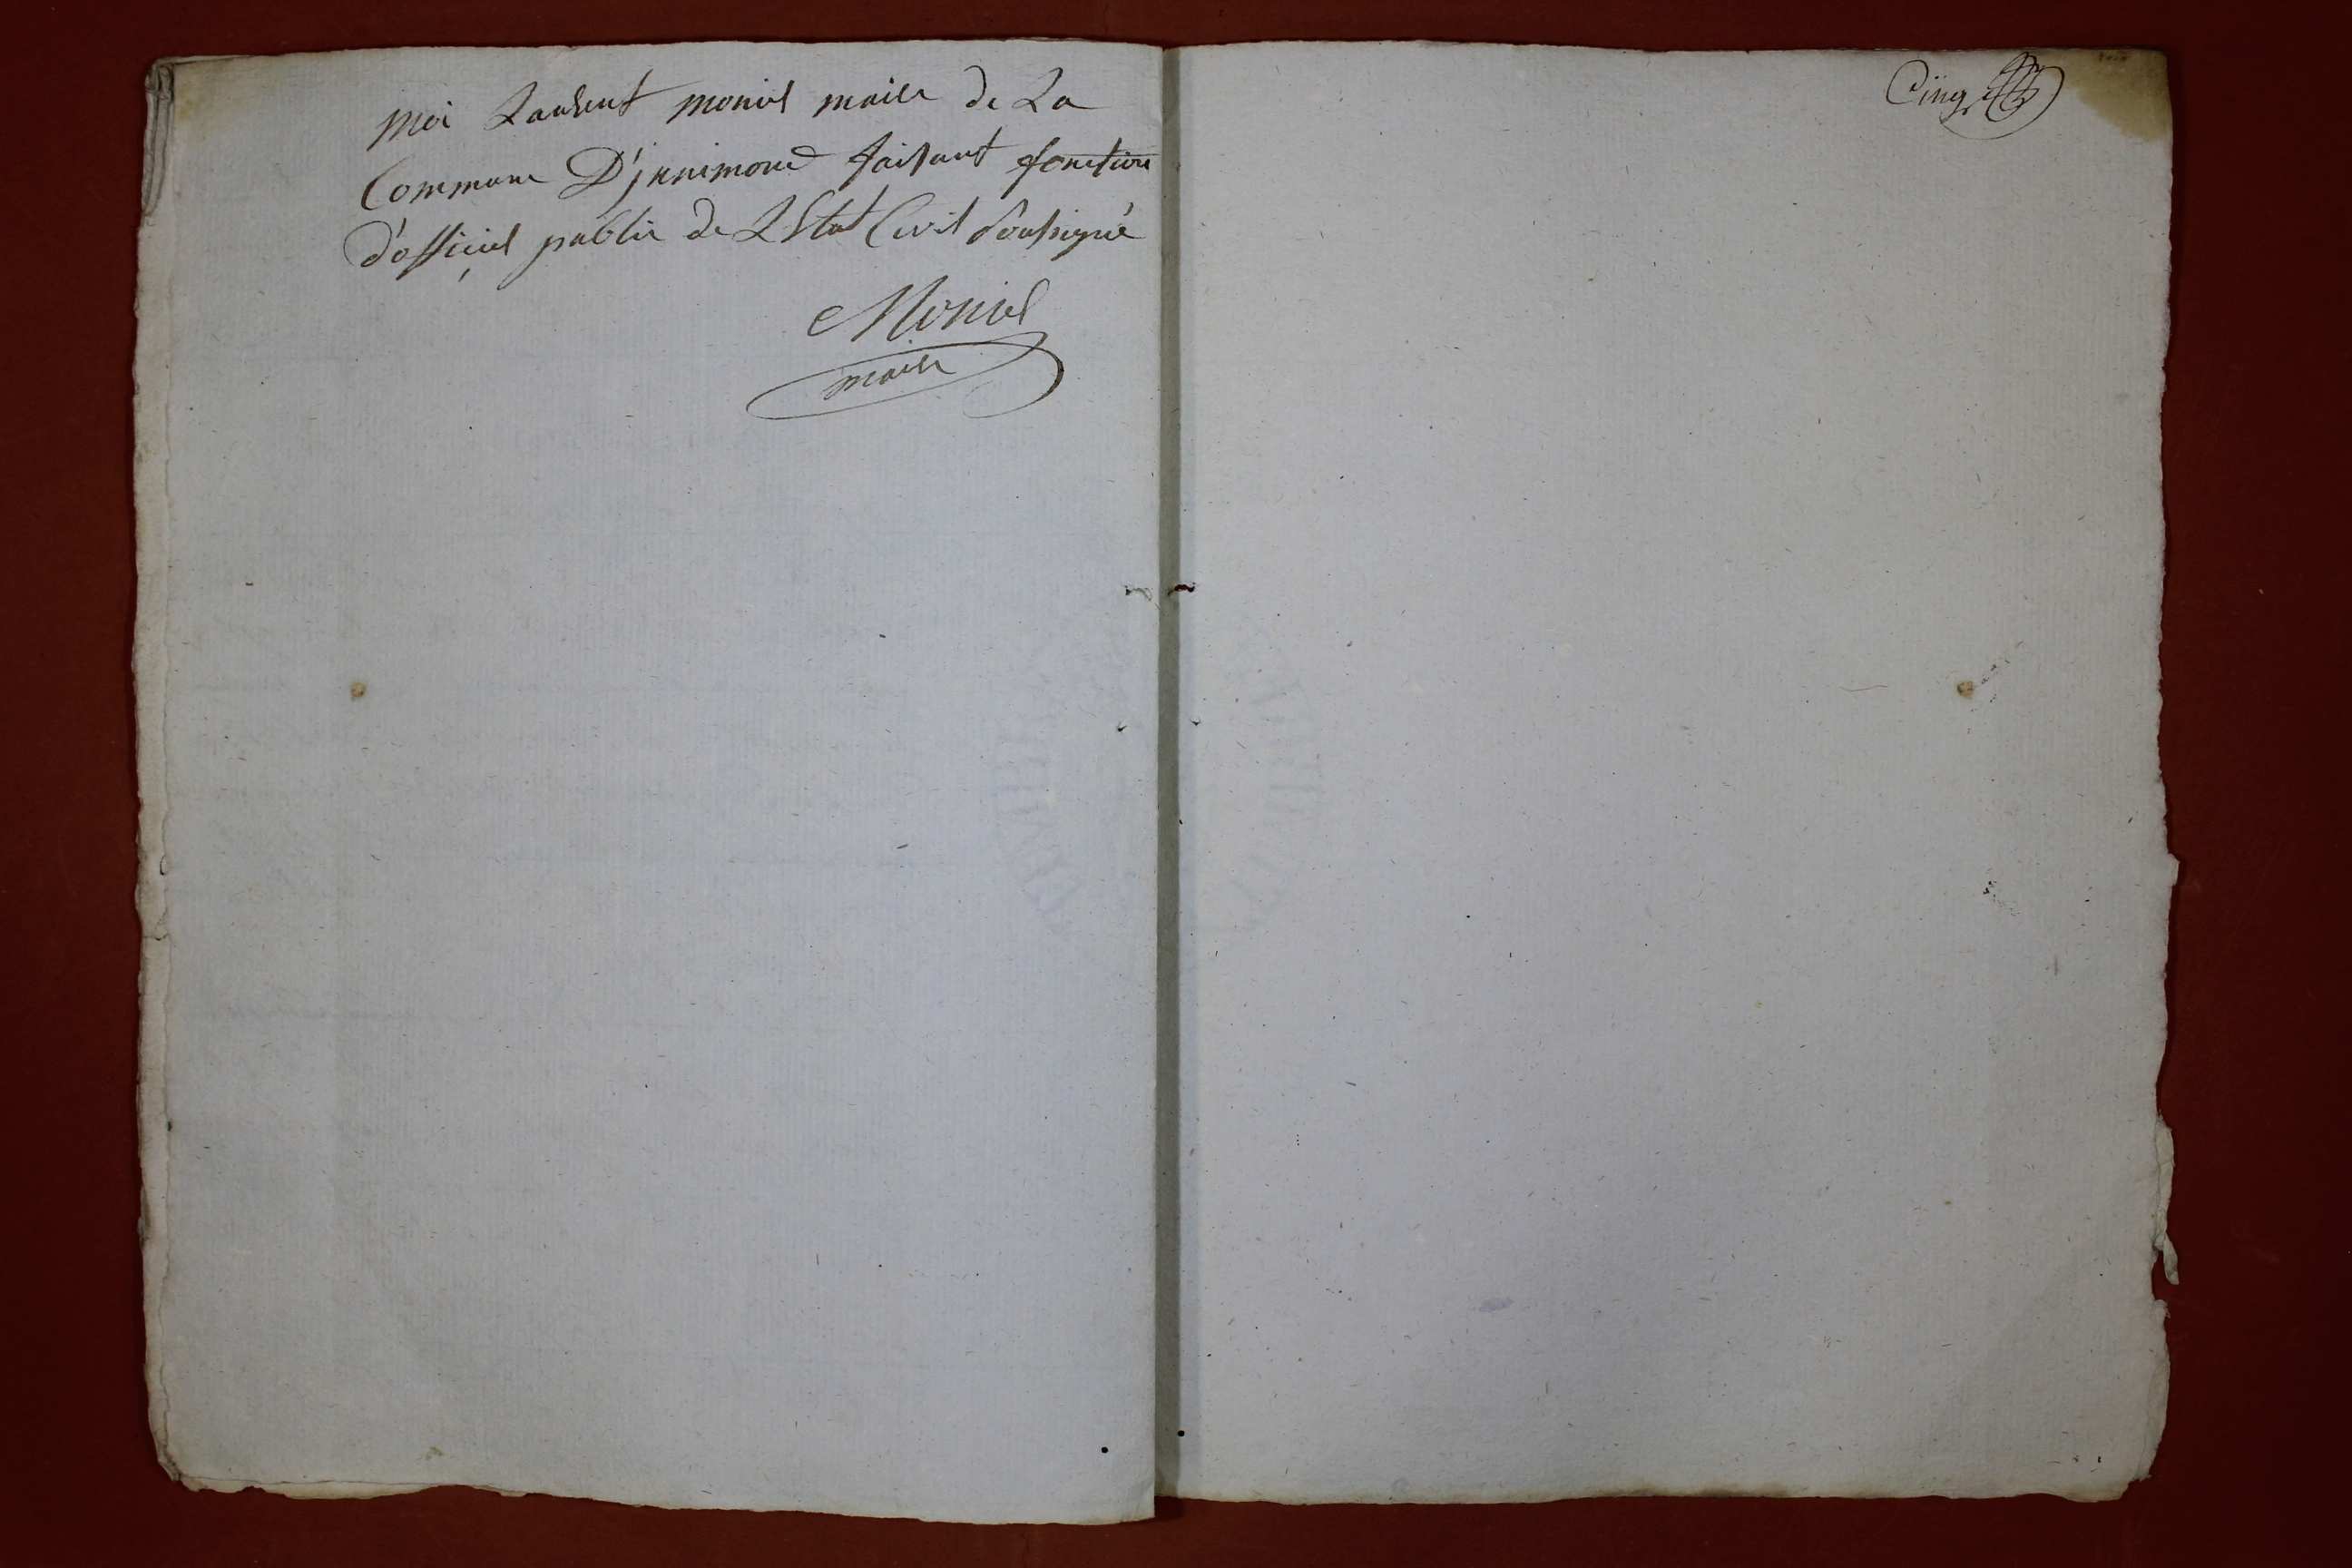 moi Laurent monier maire de La
Commune D'innimond faisant fonction
d'officier public de L'Etat Civil soussigné
Monier
maire
Cinq